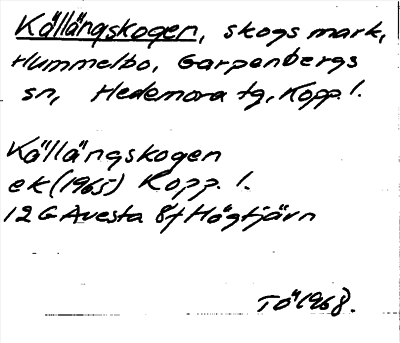 Källängskogen, skogsmark,
Hummelbo, Garpenbergs
sn, Hedemora tg, Kopp. l.
Källängskogen
ek (1965) Kopp. l.
12G Avesta 8f Högtjärn
Tö 1968.